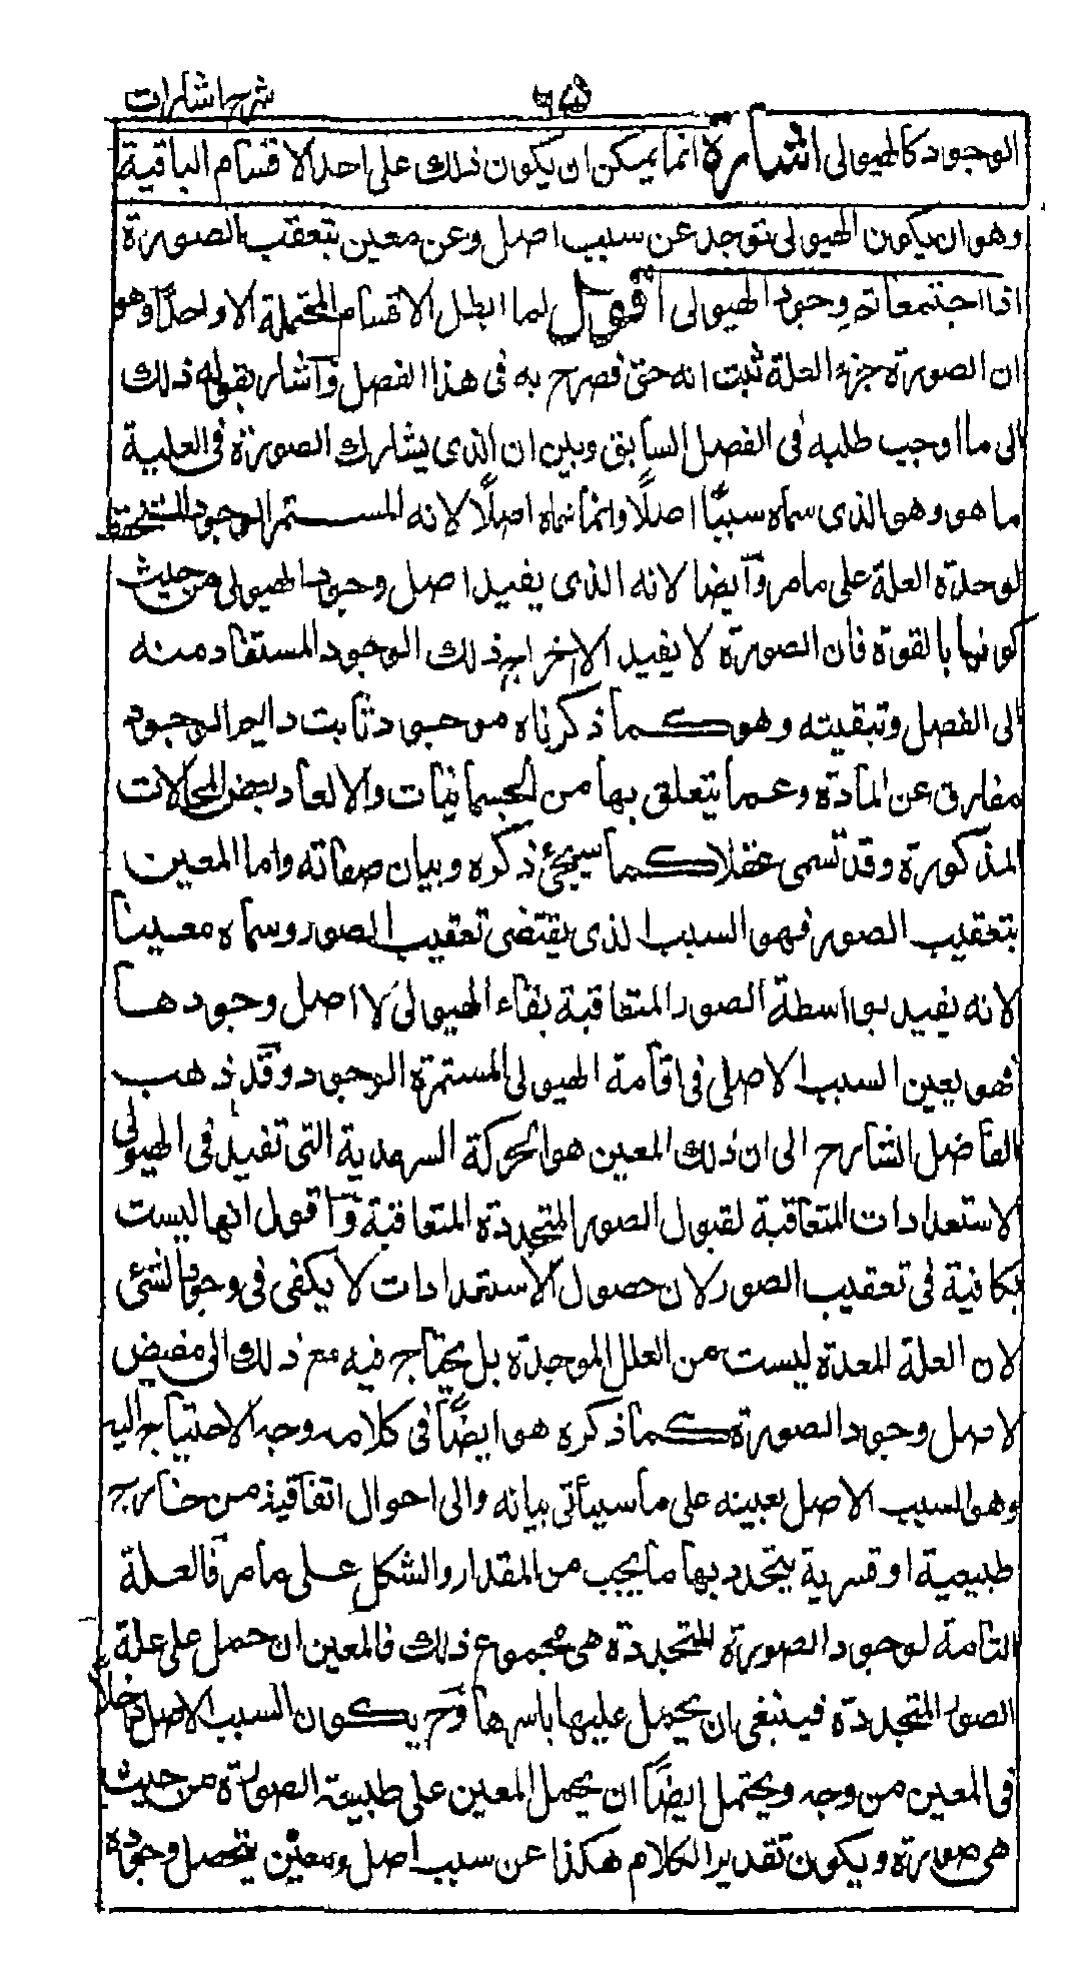 شرح اشارات ٦٥
الوجود كالهيولى اشارة انما يمكن ان يكون ذلك على احد الاقسام الباقية
وهو ان يكون الهيولى توجد عن سبب اصل وعن معين بتعقب الصورة
اذا اجتمعا تم وجود الهيولى اقول لما ابطل الاقسام المحتملة الا واحدًا وهو
ان الصورة جزء العلة ثبت انه حق فصرح به فى هذا الفصل وآشار بقوله ذلك
الى ما اوجب طلبه فى الفصل السابق وبين ان الذى يشارك الصورة فى العلية
ما هو وهو الذى سماه سببًا اصلًا وانما سماه اصلًا لانه المستمر الوجود المستحفظ
لوحدة العلة على ما مر وآيضا لانه الذى يفيد اصل وجود الهيولى من حيث
كونها بالقوة فان الصورة لا يفيد الا اخراج ذلك الوجود المستفاد منه
الى الفصل وتبقيته وهو كما ذكرناه موجود ثابت دايم الوجود
مفارق عن المادة وعما يتعلق بها من الجسمانيات والا لعاد بعض المحالات
المذكورة وقد تسمى عقلا كما سيجئ ذكره وبيان صفاته واما المعين
بتعقيب الصور فهو السبب الذى يقتضى تعقيب الصور وسماه معينا
لانه يفيد بواسطة الصور المتعاقبة بقاء الهيولى لا اصل وجودها
فهو يعين السبب الاصلى فى اقامة الهيولى المستمرة الوجود وقد ذهب
الفاضل الشارح الى ان ذلك المعين هو الحركة السرمدية التى تفيد فى الهيولى
الاستعدادات المتعاقبة لقبول الصور المتجددة المتعاقبة وآقول انها ليست
بكافية فى تعقيب الصور لان حصول الاستعدادات لا يكفى فى وجود الشئ
لان العلة المعدة ليست من العلل الموجدة بل يحتاج فيه مع ذلك الى مفيض
لاصل وجود الصورة كما ذكره هو ايضًا فى كلامه وجه الاحتياج اليه
وهو السبب الاصل بعينه على ما سيأتى بيانه والى احوال اتفاقية من خارج
طبيعية او قسرية يتحدد بها ما يجب من المقدار والشكل على ما مر فالعلة
التامة لوجود الصورة المتجددة هى مجموع ذلك فالمعين ان حمل على علة
الصور المتجددة فينبغى ان يحمل عليها باسرها وح يكون السبب الاصل داخلًا
فى المعين من وجه ويحتمل ايضًا ان يحمل المعين على طبيعة الصورة من حيث
هى صورة ويكون تقدير الكلام هكذا عن سبب اصل ومعين يتحصل وجوده